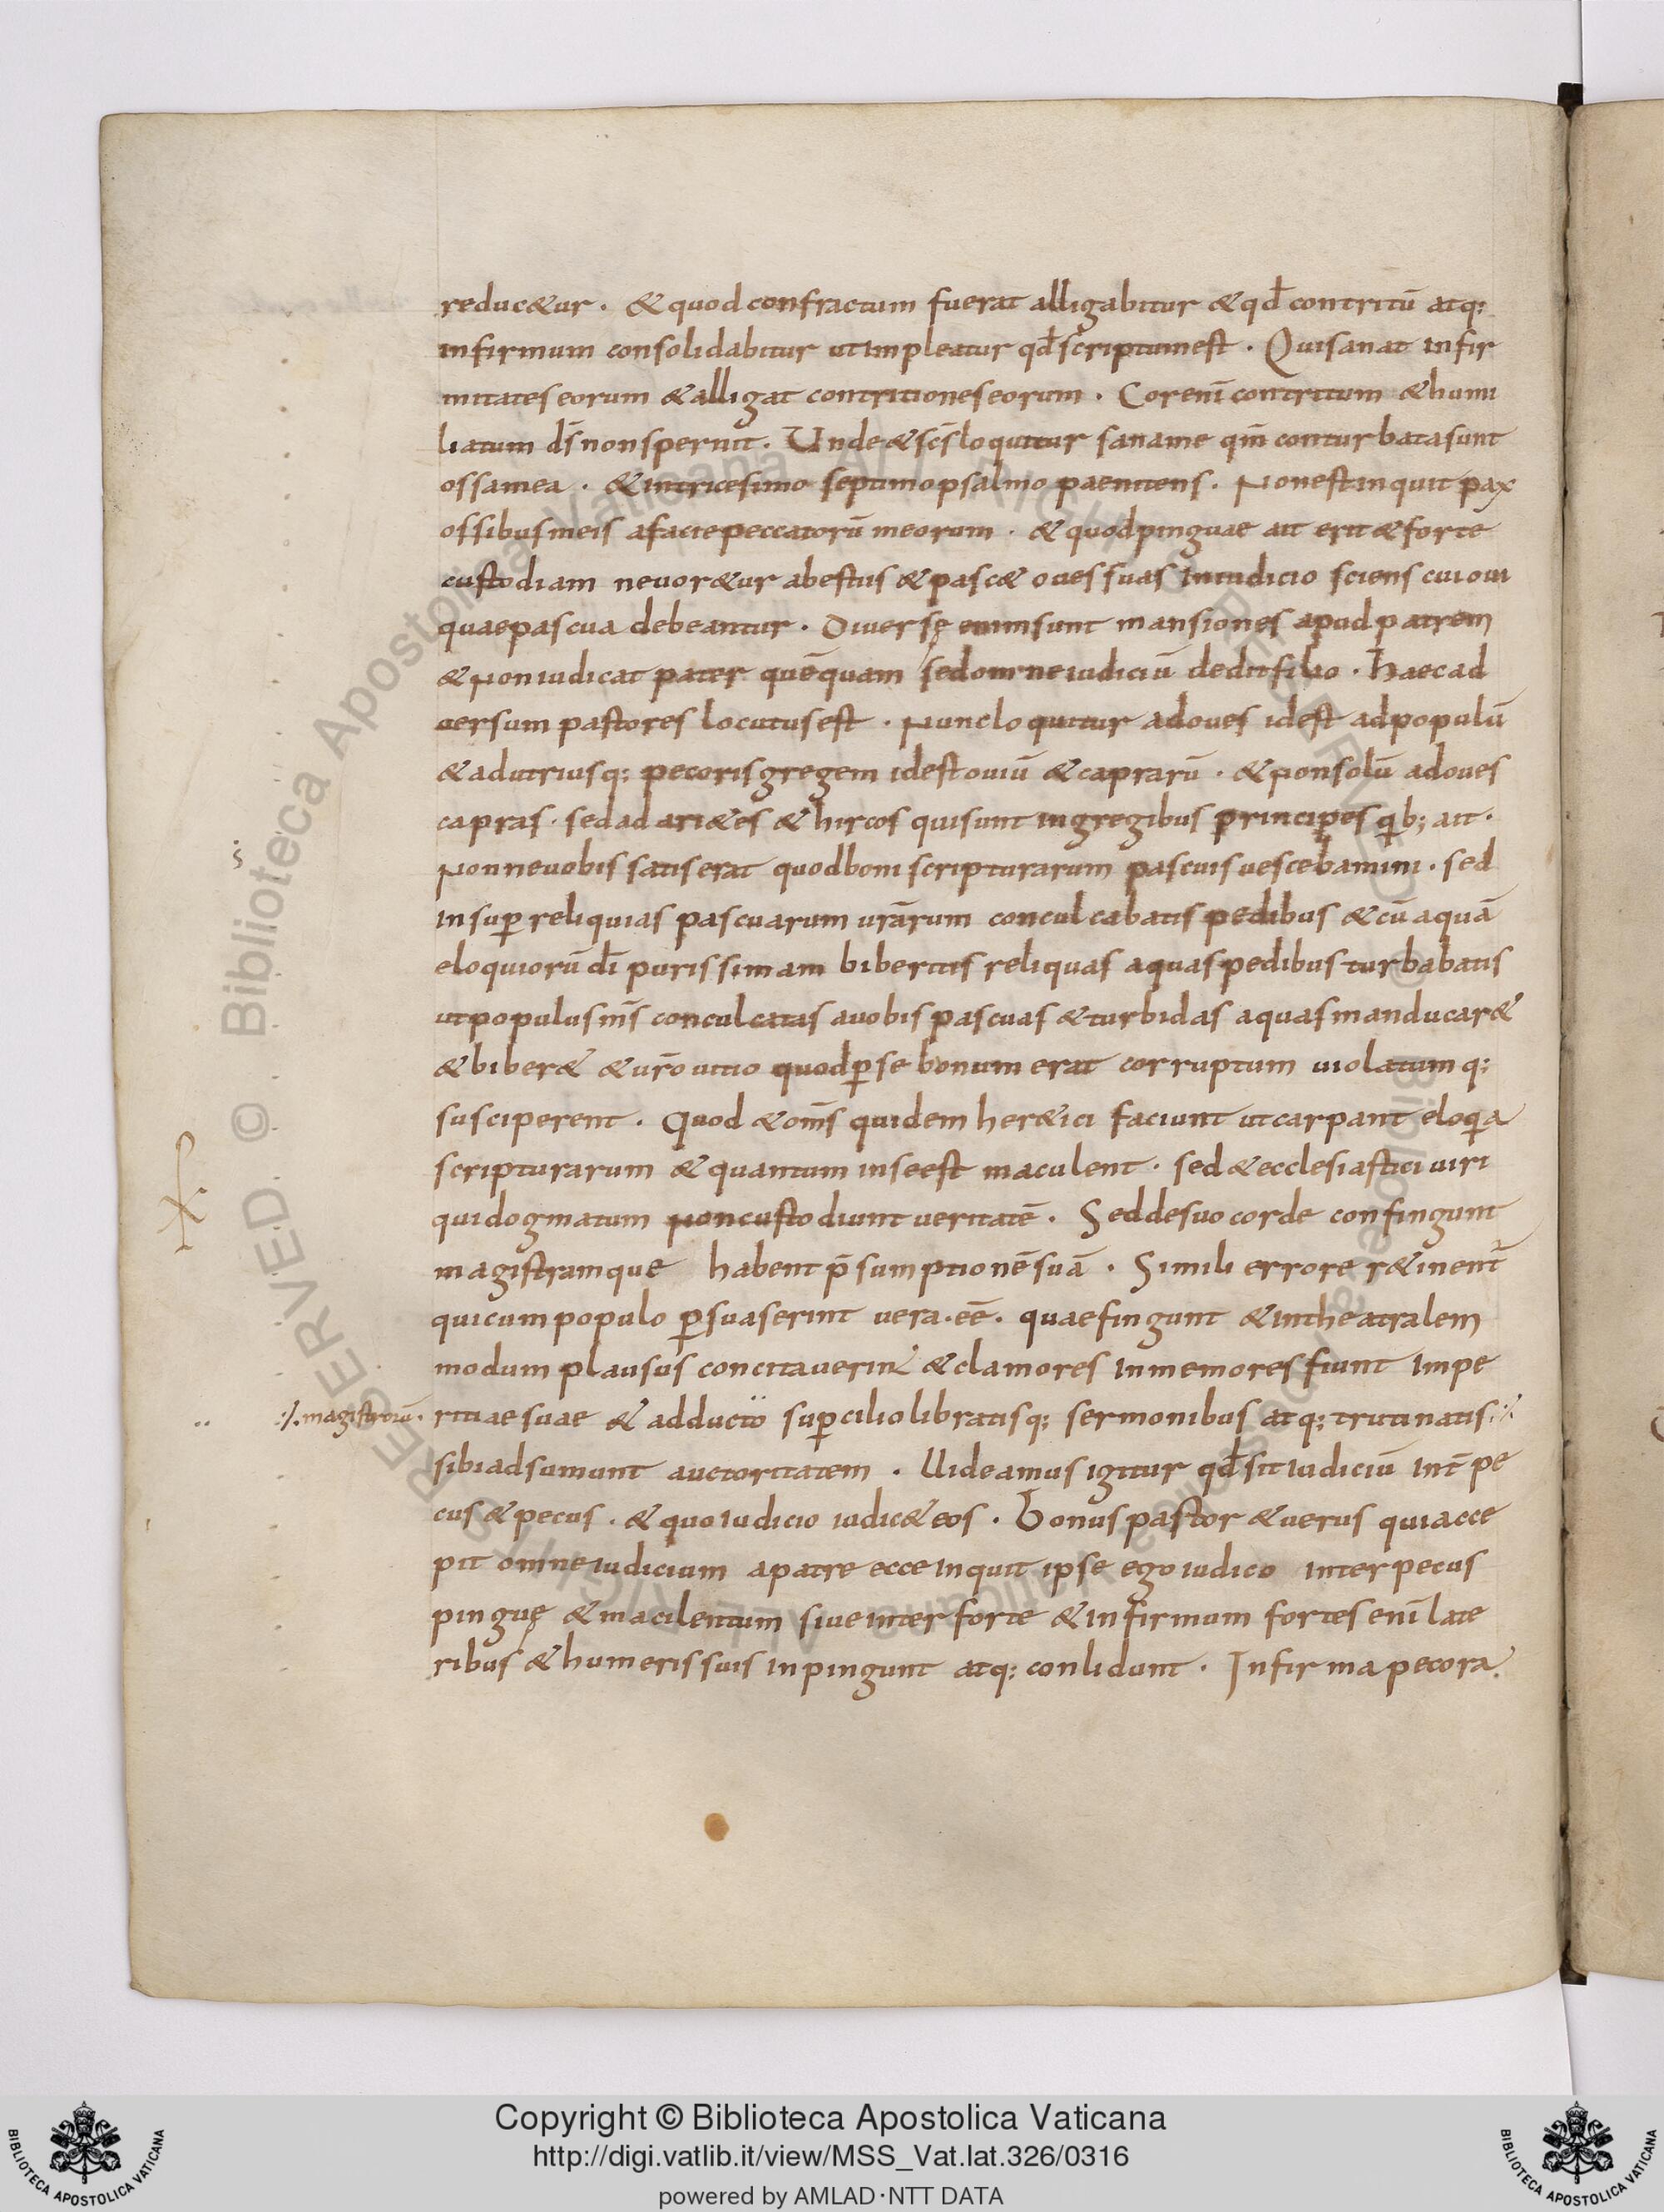 reduc&ur · & quod confractum fuerat alligabitur & qđ contritū atq:
infirmum consolidabitur ut impleatur qđ scriptum est · Qui sanat infir
mitates eorum & alligat contritiones eorum · Cor enī contritum & humi
liatum dī non spernit · Unde & scs̄ loquitur sana me qm̄ conturbata sunt
ossa mea · & in tricesimo septimo psalmo paenitens · Non est inquit pax
ossibus meis a facie peccatorū meorum · & quod pinguae ait erit & forte
custodiam ne uor&ur a bestiis & pasc& oues suas in iudicio sciens cui oui
quae pascua debeantur · Diuersę enim sunt mansiones apud patrem
& non iudicat pater quēquam sed omne iudiciū dedit filio · Haec ad
uersum pastores locutus est · Nunc loquitur ad oues id est ad populū
& ad utriusq; pecoris gregem id est ouiū & caprarū · & non solū ad oues
capras · sed ad ari&es & hircos qui sunt in gregibus principes qib; ait ·
Nonne uobis satis erat quod boni scripturarum pascuis uescebamini · sed
insup̄ reliquias pascuarum urārum conculcabatis pedibus & cū aquā
eloquiorū dī purissimam biberitis reliquas aquas pedibus turbabatis
ut populus ms̄ conculcatas a uobis pascuas & turbidas aquas manducar&
& biber& & urō uitio quod p̄ se bonum erat corruptum uiolatumq:
susciperent · Quod & oms̄ quidem her&ici faciunt ut carpant eloqia
scripturarum & quantum in se est maculent · sed & ecclesiastici uiri
qui dogmatum non custodiunt ueritatē · Sed de suo corde confingunt
magistramque habent p̄sumptionē suā · Simili errore r&inent̄
qui cum populo p̄suaserint uera · eē · quae fingunt & in theatralem
modum plausus concitauerint & clamores inmemores fiunt impe
·/. magistrorū · ritiae suae & adducto sup̄cilio libratisq; sermonibus atq; trutinatis ·/.
sibi adsumunt auctoritatem · Uideamus igitur qđ sit iudiciū int̄ pe
cus & pecus · & quo iudicio iudic& eos · Bonus pastor & uerus qui acce
pit omne iudicium a patre ecce inquit ipse ego iudico inter pecus
pinguę & macilentum siue inter forte & infirmum fortes enī late
ribus & humeris suis inpingunt atq: conlidunt · Infirma pecora
© Biblioteca Apostolica Vaticana
ALL RIGHTS RESERVED
BIBLIOTECA APOSTOLICA VATICANA
Copyright © Biblioteca Apostolica Vaticana
http://digi.vatlib.it/view/MSS_Vat.lat.326/0316
powered by AMLAD·NTT DATA
BIBLIOTECA APOSTOLICA VATICANA